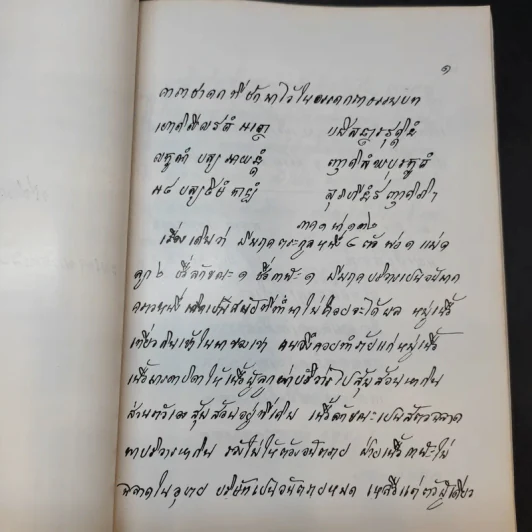 ๑
คาถาชาดกที่ชักมาไว้ใน
โหติ สีลวตํ อตฺโถ ปฏิสนฺถารวุตฺตินํ
ลกฺขณํ ปสฺส อายนฺตํ ญาติสํฆปุรกฺขตํ
อถ ปสฺสสิมํ กาฬํ สุวิหีนํว ญาติภิ
เรื่องเดิมว่า มีเนื้อตระกูลหนึ่ง ๔ ตัว พ่อ ๑ แม่ ๑
ลูก ๒ ชื่อลักขณะ ๑ ชื่อกาฬะ ๑ มีเนื้อบริวารเป็นอันมาก
คราวหนึ่ง เป็นสมัยที่ทำนาไม่ค่อยจะได้ผล หมู่เนื้อ
เที่ยวกินเข้าในนาของเขา คนจึงคอยทำร้ายแก่หมู่เนื้อ
เนื้อมารดาบิดาให้เนื้อผู้ลูกพาบริวารไปสุ้มซ่อนหากิน
ส่วนตัวเองสุ้มซ่อนอยู่ที่เดิม เนื้อลักขณะเป็นสัตว์ฉลาด
พาบริวารหากิน ไม่ให้ต้องอันตราย ฝ่ายเนื้อกาฬะไม่
ฉลาดในอุบาย บริษัทเป็นอันตรายหมด เหลือแต่ตัวผู้เดียว